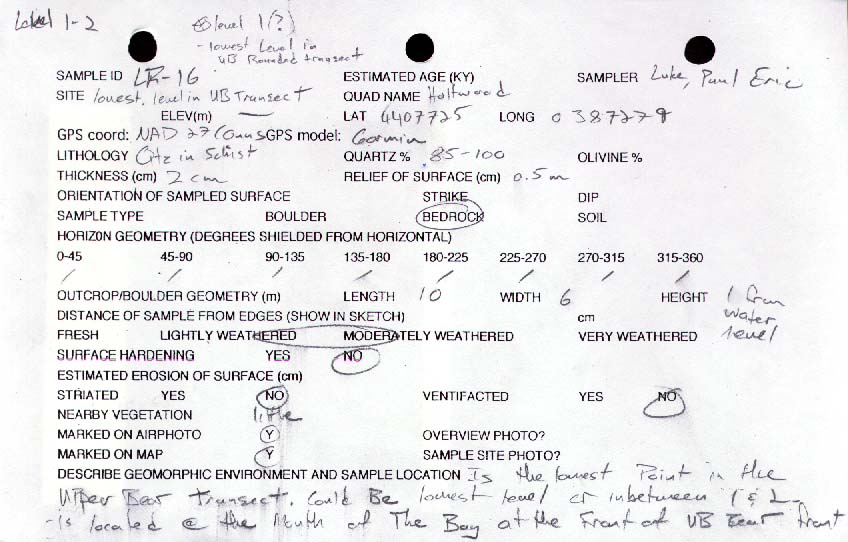 Level 1-2
level 1(?)
- lowest Level in
UB Rounded transect
SAMPLE ID LR-16 ESTIMATED AGE (KY) SAMPLER Luke, Paul Eric
SITE lowest level in UB Transect QUAD NAME Holtwood
ELEV(m) — LAT 4407725 LONG 0387279
GPS coord: NAD 27 Conus GPS model: Garmin
LITHOLOGY Qtz in Schist QUARTZ % 85-100 OLIVINE %
THICKNESS (cm) 2 cm RELIEF OF SURFACE (cm) 0.5 m
ORIENTATION OF SAMPLED SURFACE STRIKE DIP
SAMPLE TYPE BOULDER BEDROCK SOIL
HORIZON GEOMETRY (DEGREES SHIELDED FROM HORIZONTAL)
0-45 45-90 90-135 135-180 180-225 225-270 270-315 315-360
/ / / / / / / /
OUTCROP/BOULDER GEOMETRY (m) LENGTH 10 WIDTH 6 HEIGHT 1 from
DISTANCE OF SAMPLE FROM EDGES (SHOW IN SKETCH) cm water
FRESH LIGHTLY WEATHERED MODERATELY WEATHERED VERY WEATHERED level
SURFACE HARDENING YES NO
ESTIMATED EROSION OF SURFACE (cm)
STRIATED YES NO VENTIFACTED YES NO
NEARBY VEGETATION little
MARKED ON AIRPHOTO Y OVERVIEW PHOTO?
MARKED ON MAP Y SAMPLE SITE PHOTO?
DESCRIBE GEOMORPHIC ENVIRONMENT AND SAMPLE LOCATION Is the lowest Point in the
Upper Bear transect. Could Be lowest level or inbetween 1 & 2
- Is located @ the Mouth of The Bay at the Front of UB Bear front